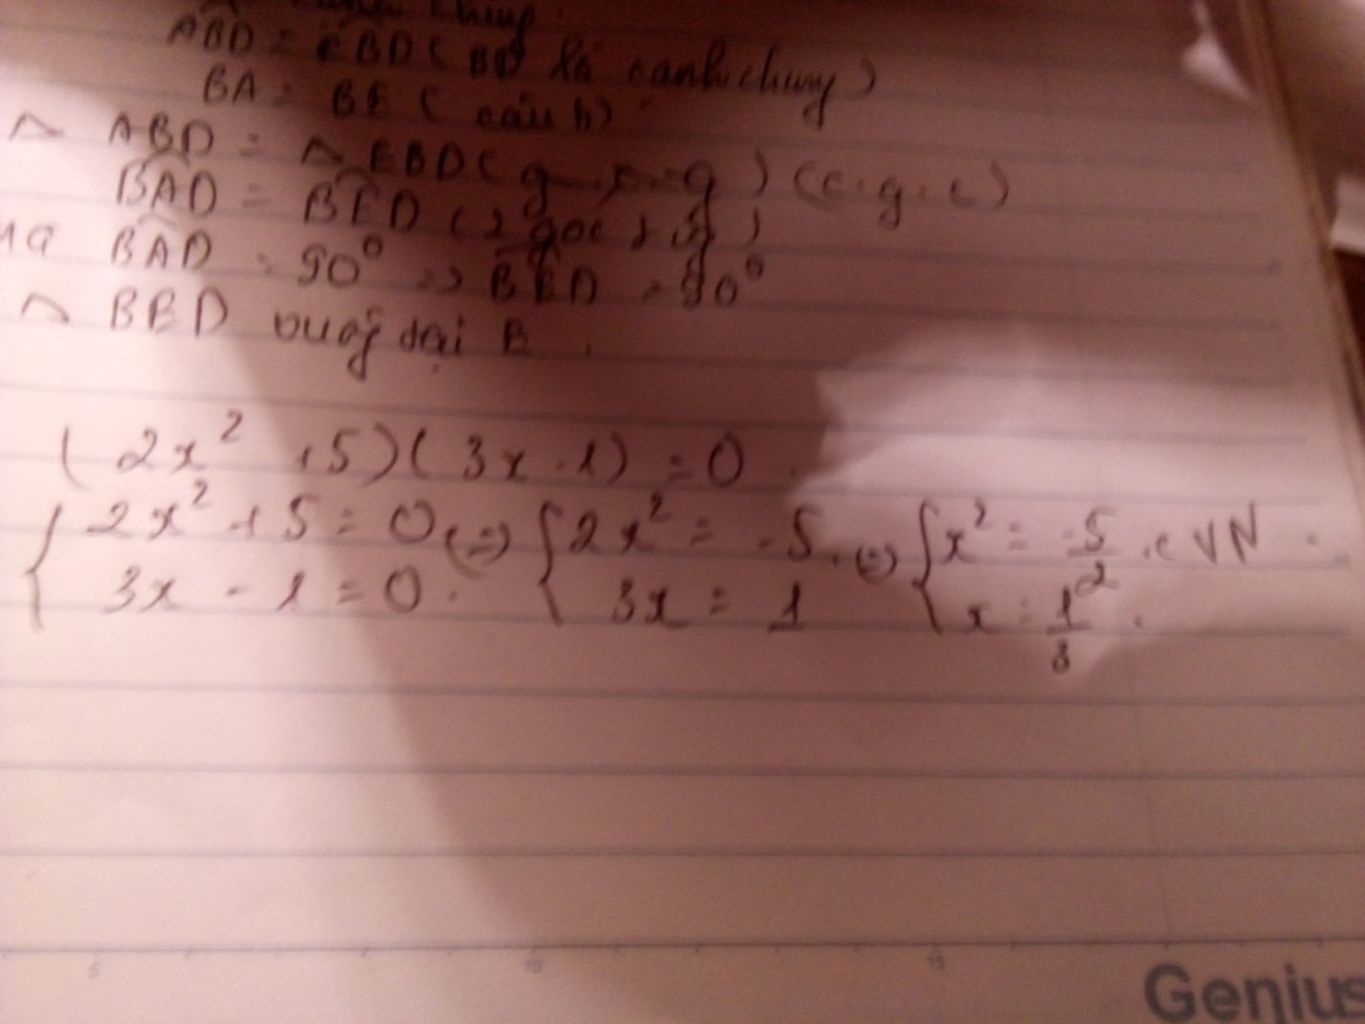 ABD = EBD ( BD là cạnh chung )
BA = BE ( câu b)
△ ABD = △ EBD ( g . c . g ) ( c . g . c )
BAD = BED ( 2 góc )
BAD = 90° => BED = 90°
△ BED vuông tại B .
( 2x² + 5)( 3x - 1) = 0 .
{ 2x² + 5 = 0 (=) { 2x² = -5 . (=) { x² = -5/2 . c VN .
3x - 1 = 0 . 3x = 1 x = 1/3 .
5 10 15
Genius